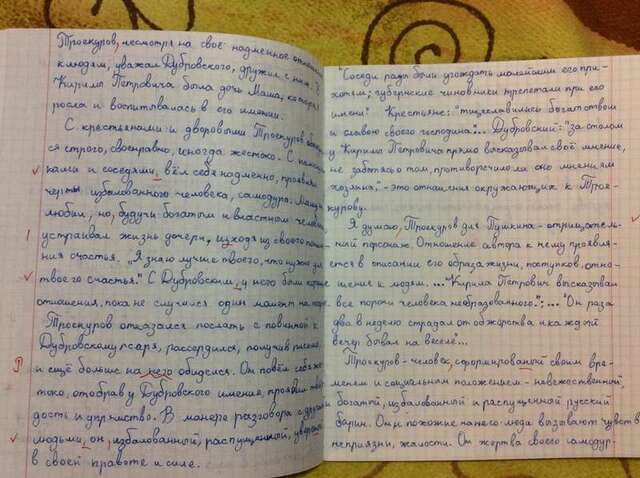 Троекуров, несмотря на своё надменное отношение
к людям, уважал Дубровского, дружил с ним. У
Кирилы Петровича была дочь Маша, которая
росла и воспитывалась в его имении.
С крестьянами и дворовыми Троекуров
ся строго, своенравно, иногда жестоко. С
ками и соседями, вёл себя надменно, проявляя
черты избалованного человека, самодура. Машу он
любил, но, будучи богатым и властным человеком
устраивал жизнь дочери, исходя из своего
ния счастья. "Я знаю лучше твоего, что нужно для
твоего счастья." С Дубровским, у него были хорошие
отношения, пока не случился один момент на псарне.
Троекуров отказался послать с повинной к
Дубровскому псаря, рассердился, получив письмо,
и ещё больше на него обиделся. Он повёл себя
токо, отобрав у Дубровского имение, проявил
дость и упрямство. В манере разговора с другими
людьми, он, избалованный, распущенный, уверен
в своей правоте и силе.
"Соседи рады были угождать малейшим его при-
хотям; губернские чиновники трепетали при его
имени" Крестьяне: "тщеславились богатством
и славою своего господина... Дубровский: "за столом
у Кирила Петровича прямо высказывал своё мнение,
не заботясь о том, противоречило ли оно мнениям
хозяина." - это отношения окружающих к Трое-
курову.
Я думаю, Троекуров для Пушкина - отрицатель-
ный персонаж. Отношение автора к нему проявля-
ется в описании его образа жизни, поступков, отно-
шение к людям. ... "Кирила Петрович высказывал
все пороки человека необразованного."; ... "Он раза
два в неделю страдал от обжорства и каждой
вечер бывал на веселе"...
Троекуров - человек, сформированый своим вре-
менем и социальным положением - невежественной,
богатой, избалованной и распущенной русский
барин. Он и похожие на него люди вызывают чувств
неприязни, жалости. Он жертва своего самодур-